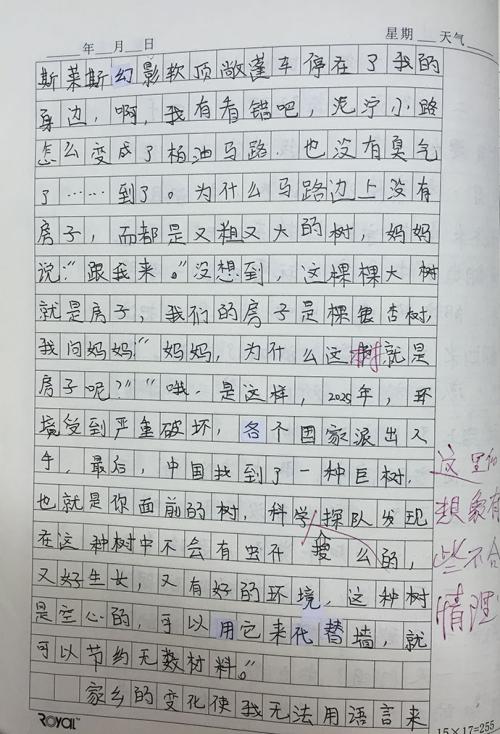 年 月 日 星期 天气
斯莱斯幻影软顶敞蓬车停在了我的
身边，啊，我有看错吧，泥泞小路
怎么变成了柏油马路．也没有臭气
了……到了。为什么马路边上没有
房子，而都是又粗又大的树，妈妈
说：“跟我来。”没想到，这棵棵大树
就是房子，我们的房子是棵银杏树，
我问妈妈：“妈妈，为什么这树就是
房子呢？”“哦，是这样，2025年，环
境受到严重破坏，各个国家派出人
手，最后，中国找到了一种巨树，
也就是你面前的树，科学探队发现
在这种树中不会有虫什 么的，
又好生长，又有好的环境，这种树
是空心的，可以用它来代替墙，就
可以节约无数材料。”
家乡的变化使我无法用语言来
这里的
想象有
些不合
情理
ROYAL
15×17=255